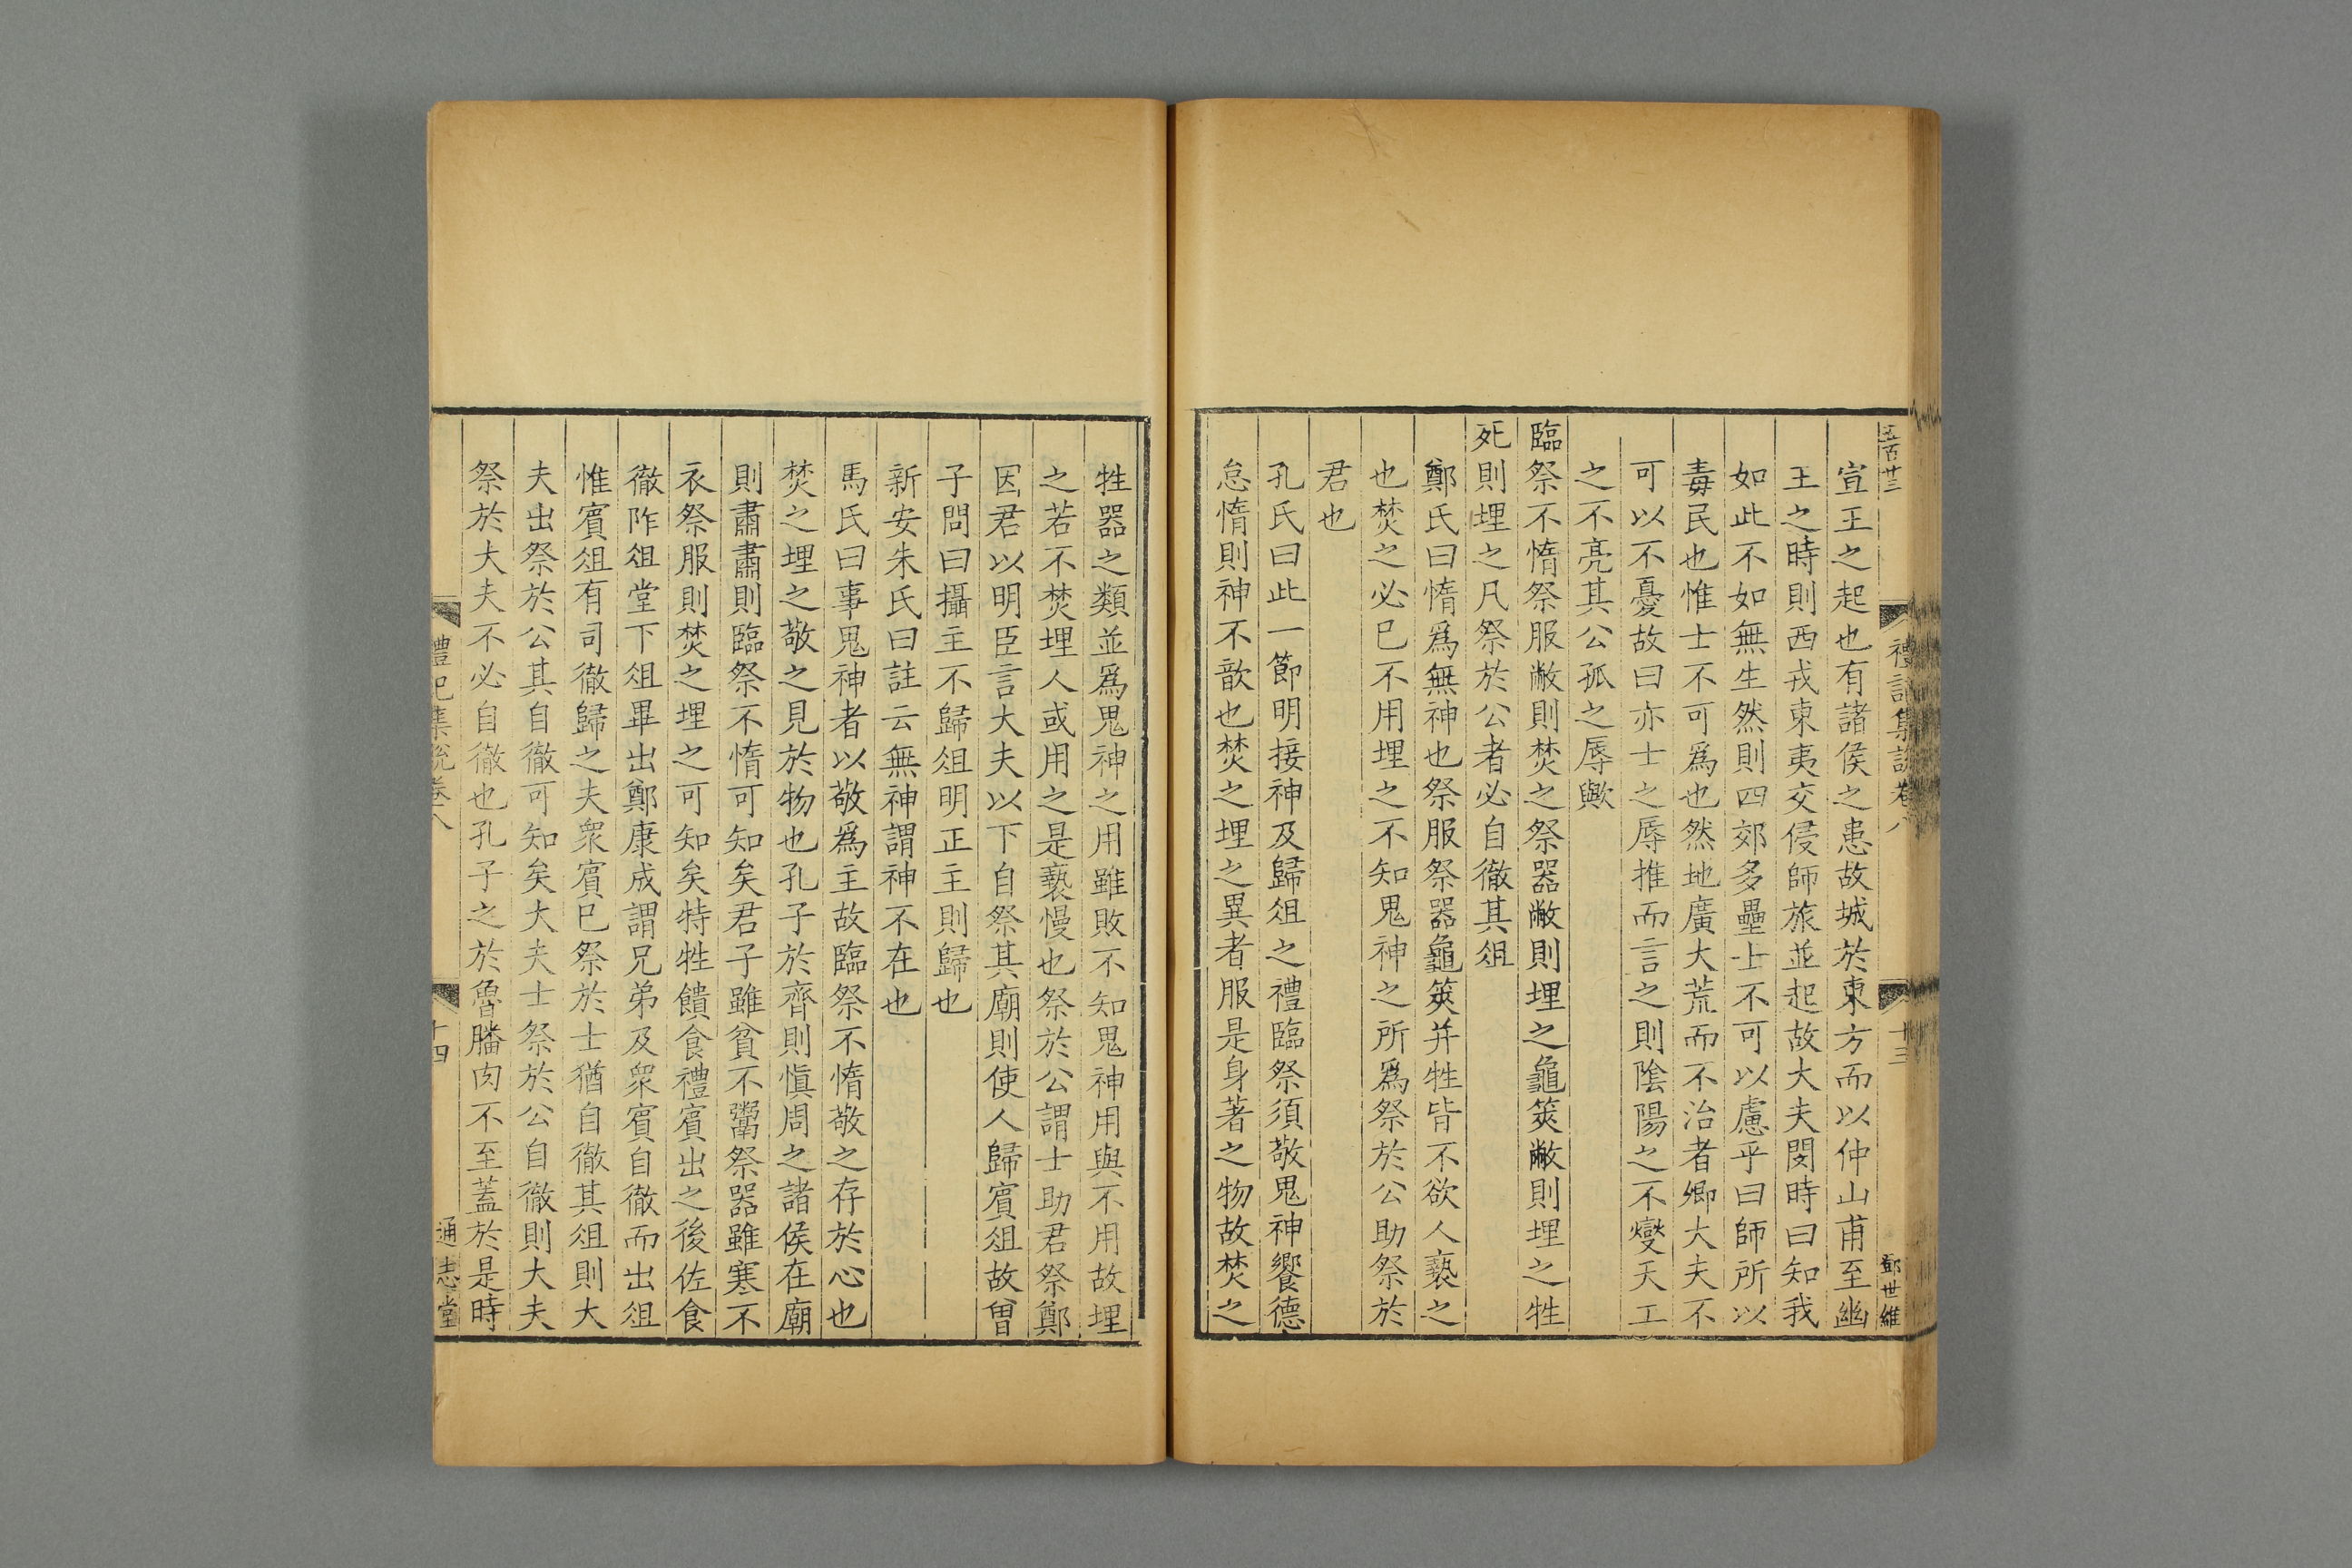 五百廿三
禮記集說卷八
十三
鄧世維
宣王之起也有諸侯之患故城於東方而以仲山甫至幽
王之時則西戎東夷交侵師旅並起故大夫閔時曰知我
如此不如無生然則四郊多壘士不可以慮乎曰師所以
毒民也惟士不可爲也然地廣大荒而不治者卿大夫不
可以不憂故曰亦士之辱推而言之則隂陽之不燮天工
之不亮其公孤之辱歟
臨祭不惰祭服敝則焚之祭器敝則埋之龜筴敝則埋之牲
死則埋之凡祭於公者必自徹其俎
鄭氏曰惰爲無神也祭服祭器龜筴并牲皆不欲人褻之
也焚之必已不用埋之不知鬼神之所爲祭於公助祭於
君也
孔氏曰此一節明接神及歸俎之禮臨祭須敬鬼神饗德
怠惰則神不歆也焚之埋之異者服是身著之物故焚之
牲器之類並爲鬼神之用雖敗不知鬼神用與不用故埋
之若不焚埋人或用之是褻慢也祭於公謂士助君祭鄭
因君以明臣言大夫以下自祭其廟則使人歸賓俎故曾
子問曰攝主不歸俎明正主則歸也
新安朱氏曰註云無神謂神不在也
馬氏曰事鬼神者以敬爲主故臨祭不惰敬之存於心也
焚之埋之敬之見於物也孔子於齊則愼周之諸侯在廟
則肅肅則臨祭不惰可知矣君子雖貧不鬻祭器雖寒不
衣祭服則焚之埋之可知矣特牲饋食禮賓出之後佐食
徹阼俎堂下俎畢出鄭康成謂兄弟及衆賓自徹而出俎
惟賓俎有司徹歸之夫衆賓已祭於士猶自徹其俎則大
夫出祭於公其自徹可知矣大夫士祭於公自徹則大夫
祭於大夫不必自徹也孔子之於魯膰肉不至蓋於是時
禮記集說卷八
十四
通志堂